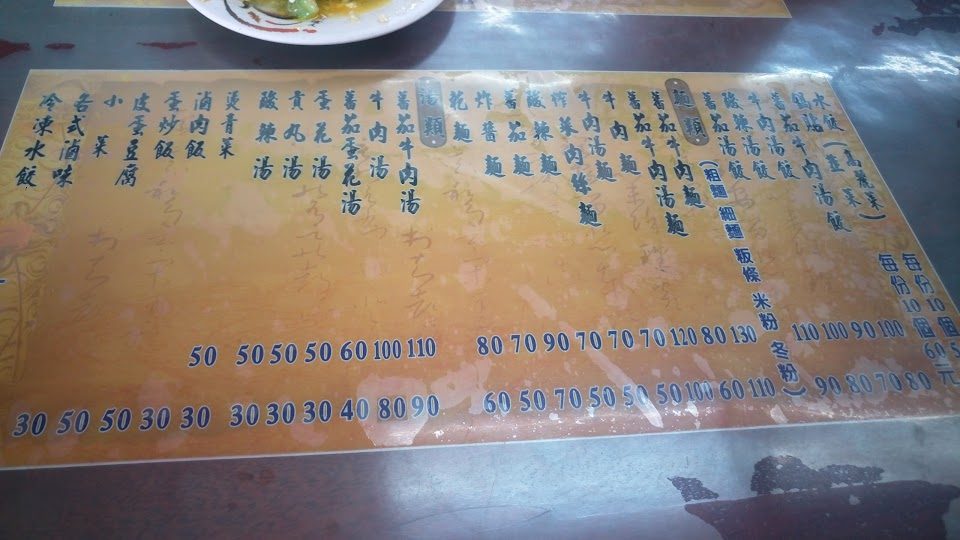 水餃(韭菜
高麗菜)
每份10個
鍋貼
每份10個60元
蕃茄牛肉湯餃
牛肉湯餃
酸辣湯餃
蕃茄湯餃
麵類
(粗麵 細麵 粄條 米粉 冬粉)
蕃茄牛肉麵
蕃茄牛肉湯麵
牛肉麵
牛肉湯麵
榨菜肉絲麵
酸辣麵
蕃茄麵
炸醬麵
乾麵
湯類
蕃茄牛肉湯
牛肉湯
蕃茄蛋花湯
蛋花湯
貢丸湯
酸辣湯
燙青菜
滷肉飯
蛋炒飯
皮蛋豆腐
小菜
各式滷味
冷凍水餃
50 50 50 50 60 100 110 80 70 90 70 70 70 120 80 130 110 100 90 100
30 50 50 30 30 30 30 30 40 80 90 60 50 70 50 50 50 100 60 110 90 80 70 80